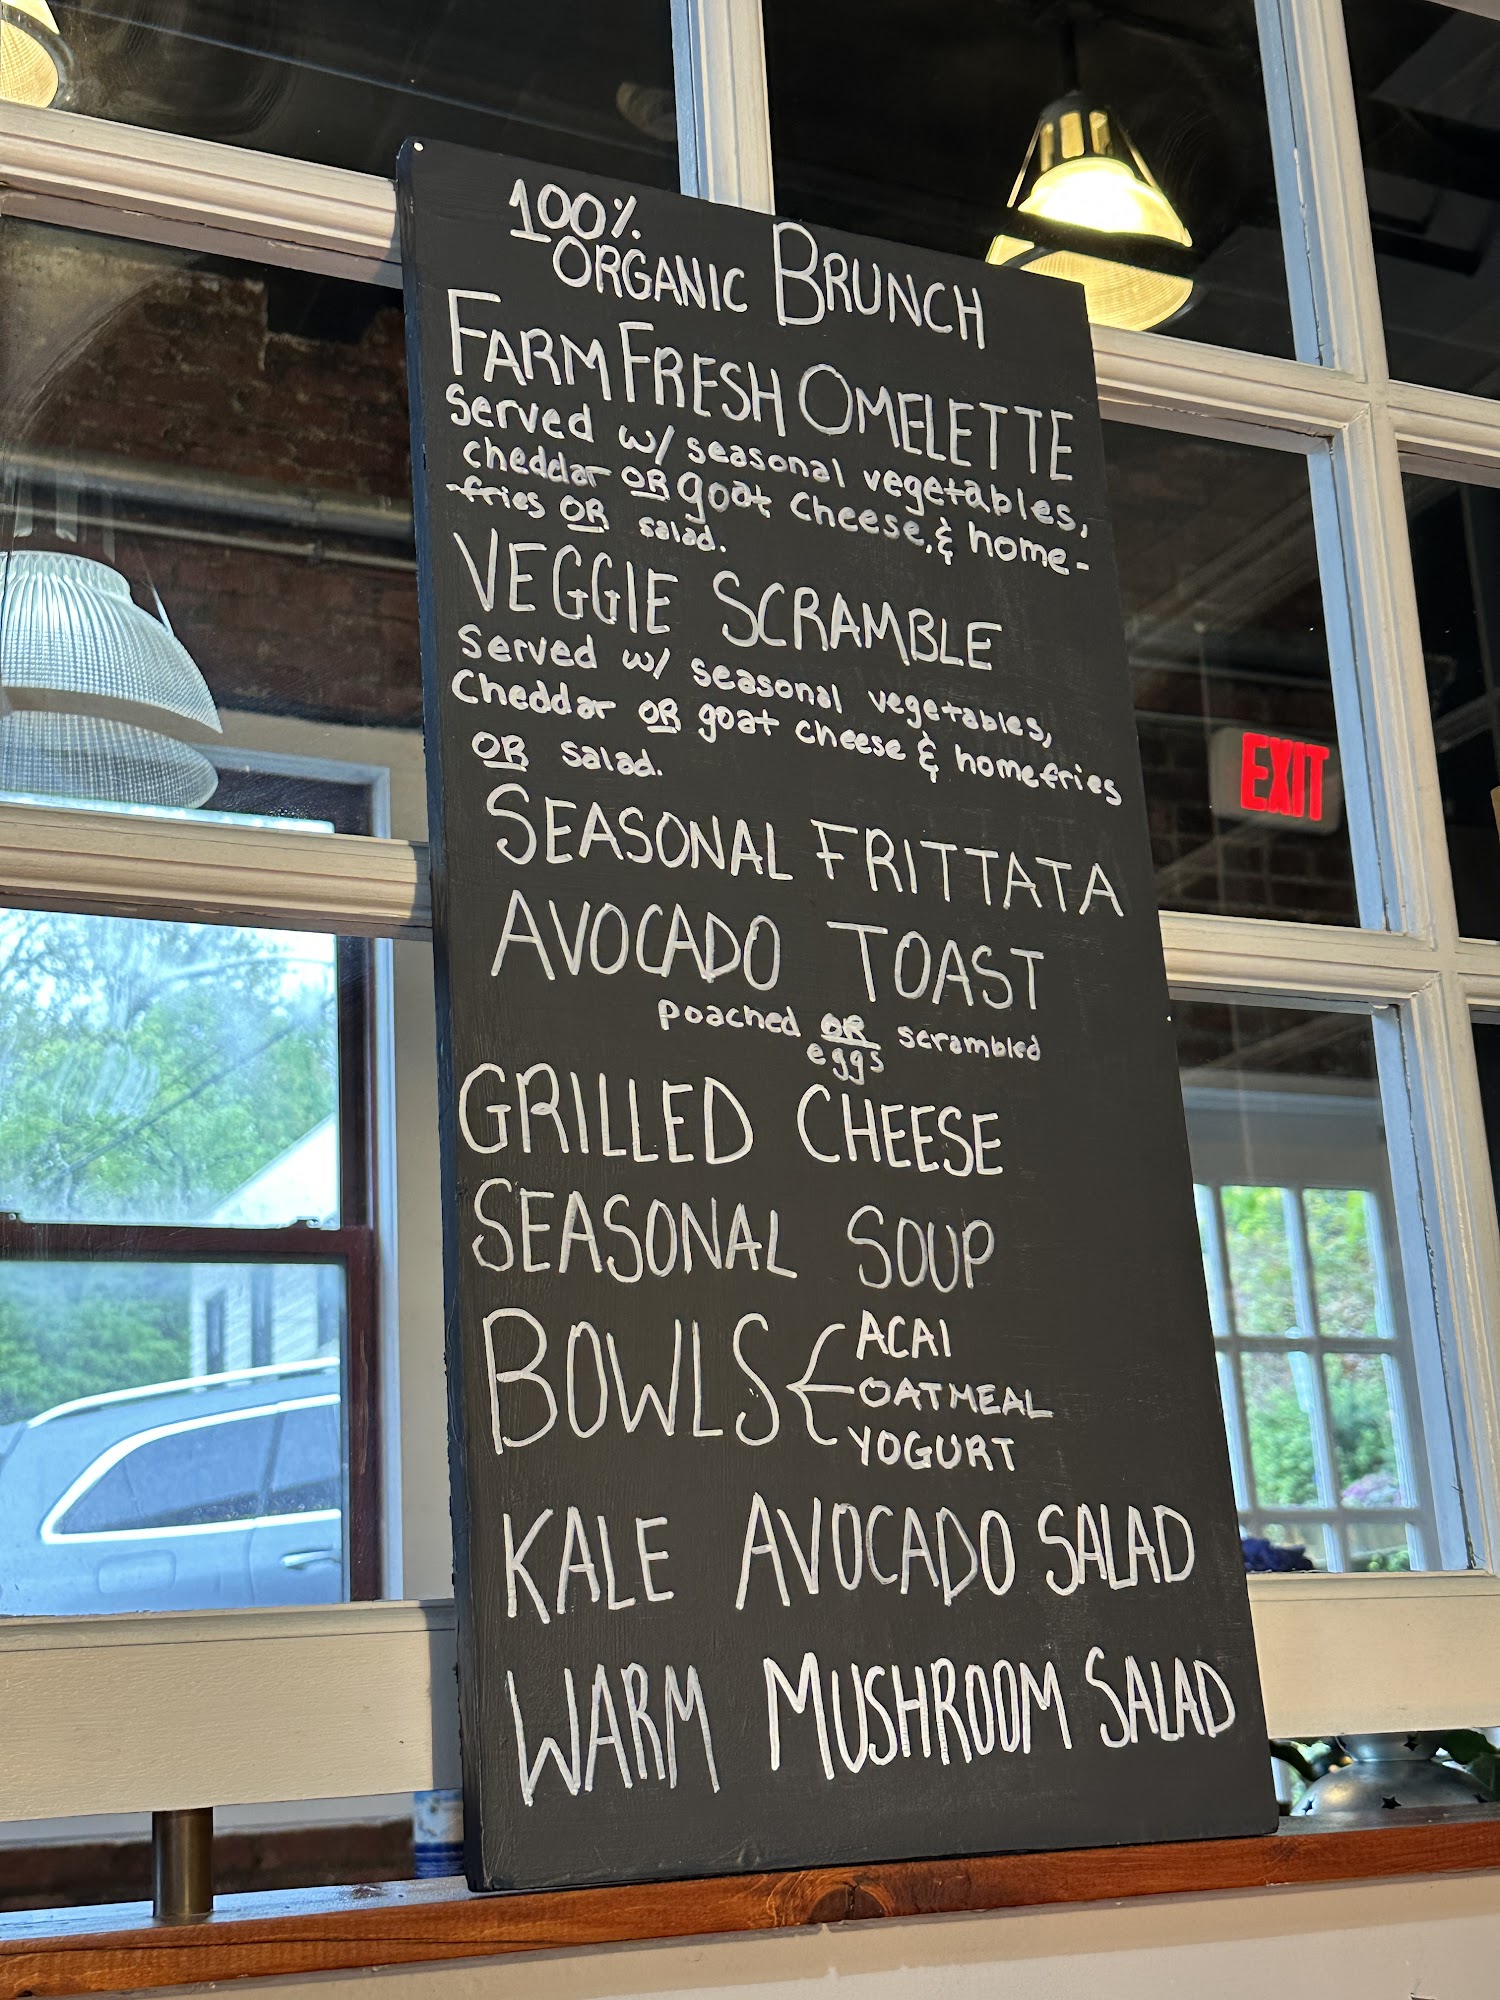 100%
ORGANIC BRUNCH
FARM FRESH OMELETTE
served w/ seasonal vegetables,
cheddar OR goat cheese, & home-
fries OR salad.
VEGGIE SCRAMBLE
served w/ seasonal vegetables,
Cheddar OR goat cheese & homefries
OR salad.
SEASONAL FRITTATA
AVOCADO TOAST
poached OR scrambled
eggs
GRILLED CHEESE
SEASONAL SOUP
BOWLS
ACAI
OATMEAL
YOGURT
KALE AVOCADO SALAD
WARM MUSHROOM SALAD
EXIT